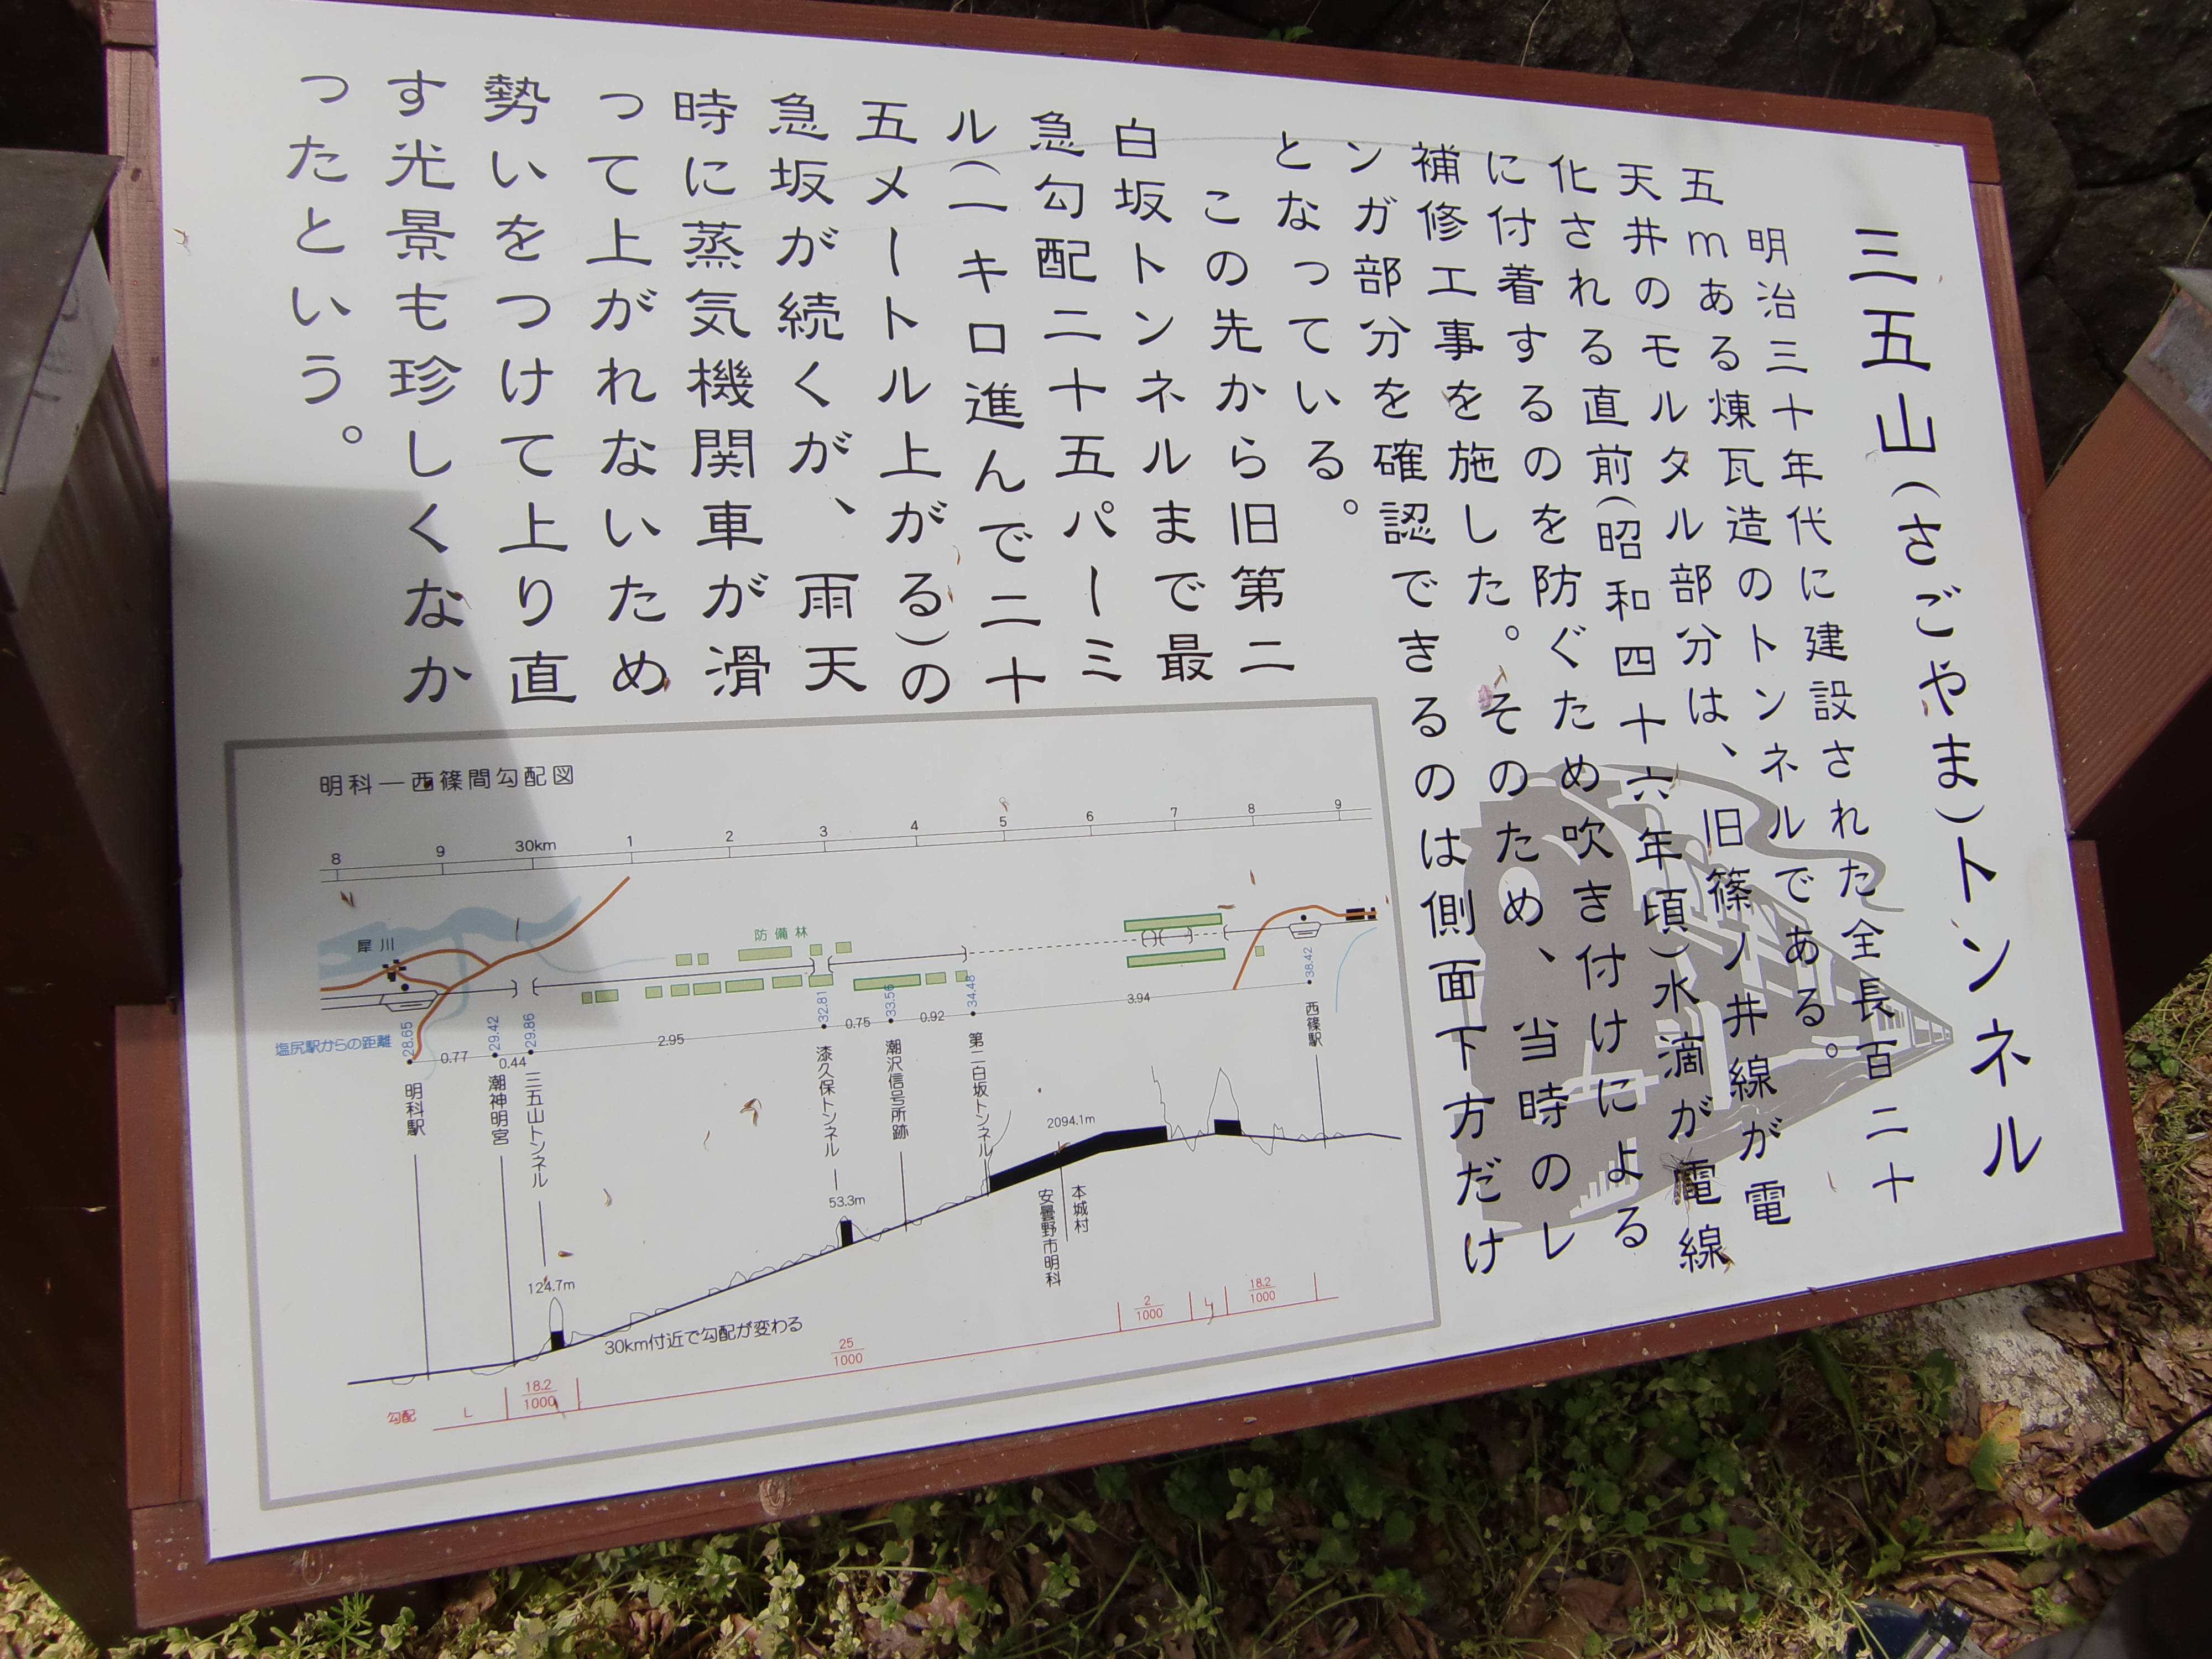 三五山(さごやま)トンネル
明治三十年代に建設された全長百二十
五mある煉瓦造のトンネルである。
天井のモルタル部分は、旧篠ノ井線が電
化される直前(昭和四十六年頃)水滴が電線
に付着するのを防ぐため吹き付けによる
補修工事を施した。そのため、当時のレ
ンガ部分を確認できるのは側面下方だけ
となっている。
この先から旧第二
白坂トンネルまで最
急勾配二十五パーミ
ル(一キロ進んで二十
五メートル上がる)の
急坂が続くが、雨天
時に蒸気機関車が滑
って上がれないため
勢いをつけて上り直
す光景も珍しくなか
ったという。
明科―西篠間勾配図
8 9 30km 1 2 3 4 5 6 7 8 9
犀川
防備林
塩尻駅からの距離
28.65 29.42 29.86 32.81 33.56 34.48 38.42
0.77 0.44 2.95 0.75 0.92 3.94
明科駅
潮神明宮
三五山トンネル
漆久保トンネル
潮沢信号所跡
第二白坂トンネル
西篠駅
124.7m
53.3m
2094.1m
安曇野市明科
本城村
30km付近で勾配が変わる
勾配 L 18.2/1000 25/1000 2/1000 L 18.2/1000